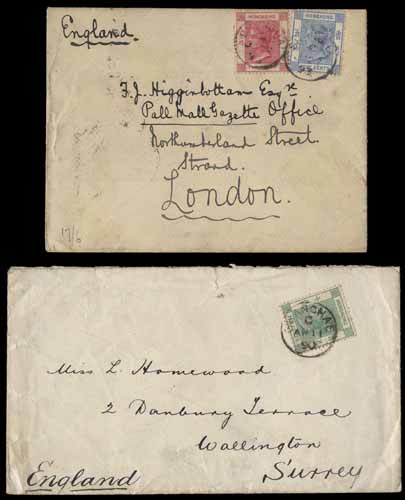 England.
HONG KONG
HONG KONG
CENTS
F. J. Higginbottam Esqre
Pall Mall Gazette Office
Northumberland Street
Strand.
London.
17/6
C
AP 11
90
Miss L. Homewood
2 Danbury Terrace
Wallington
England
Surrey